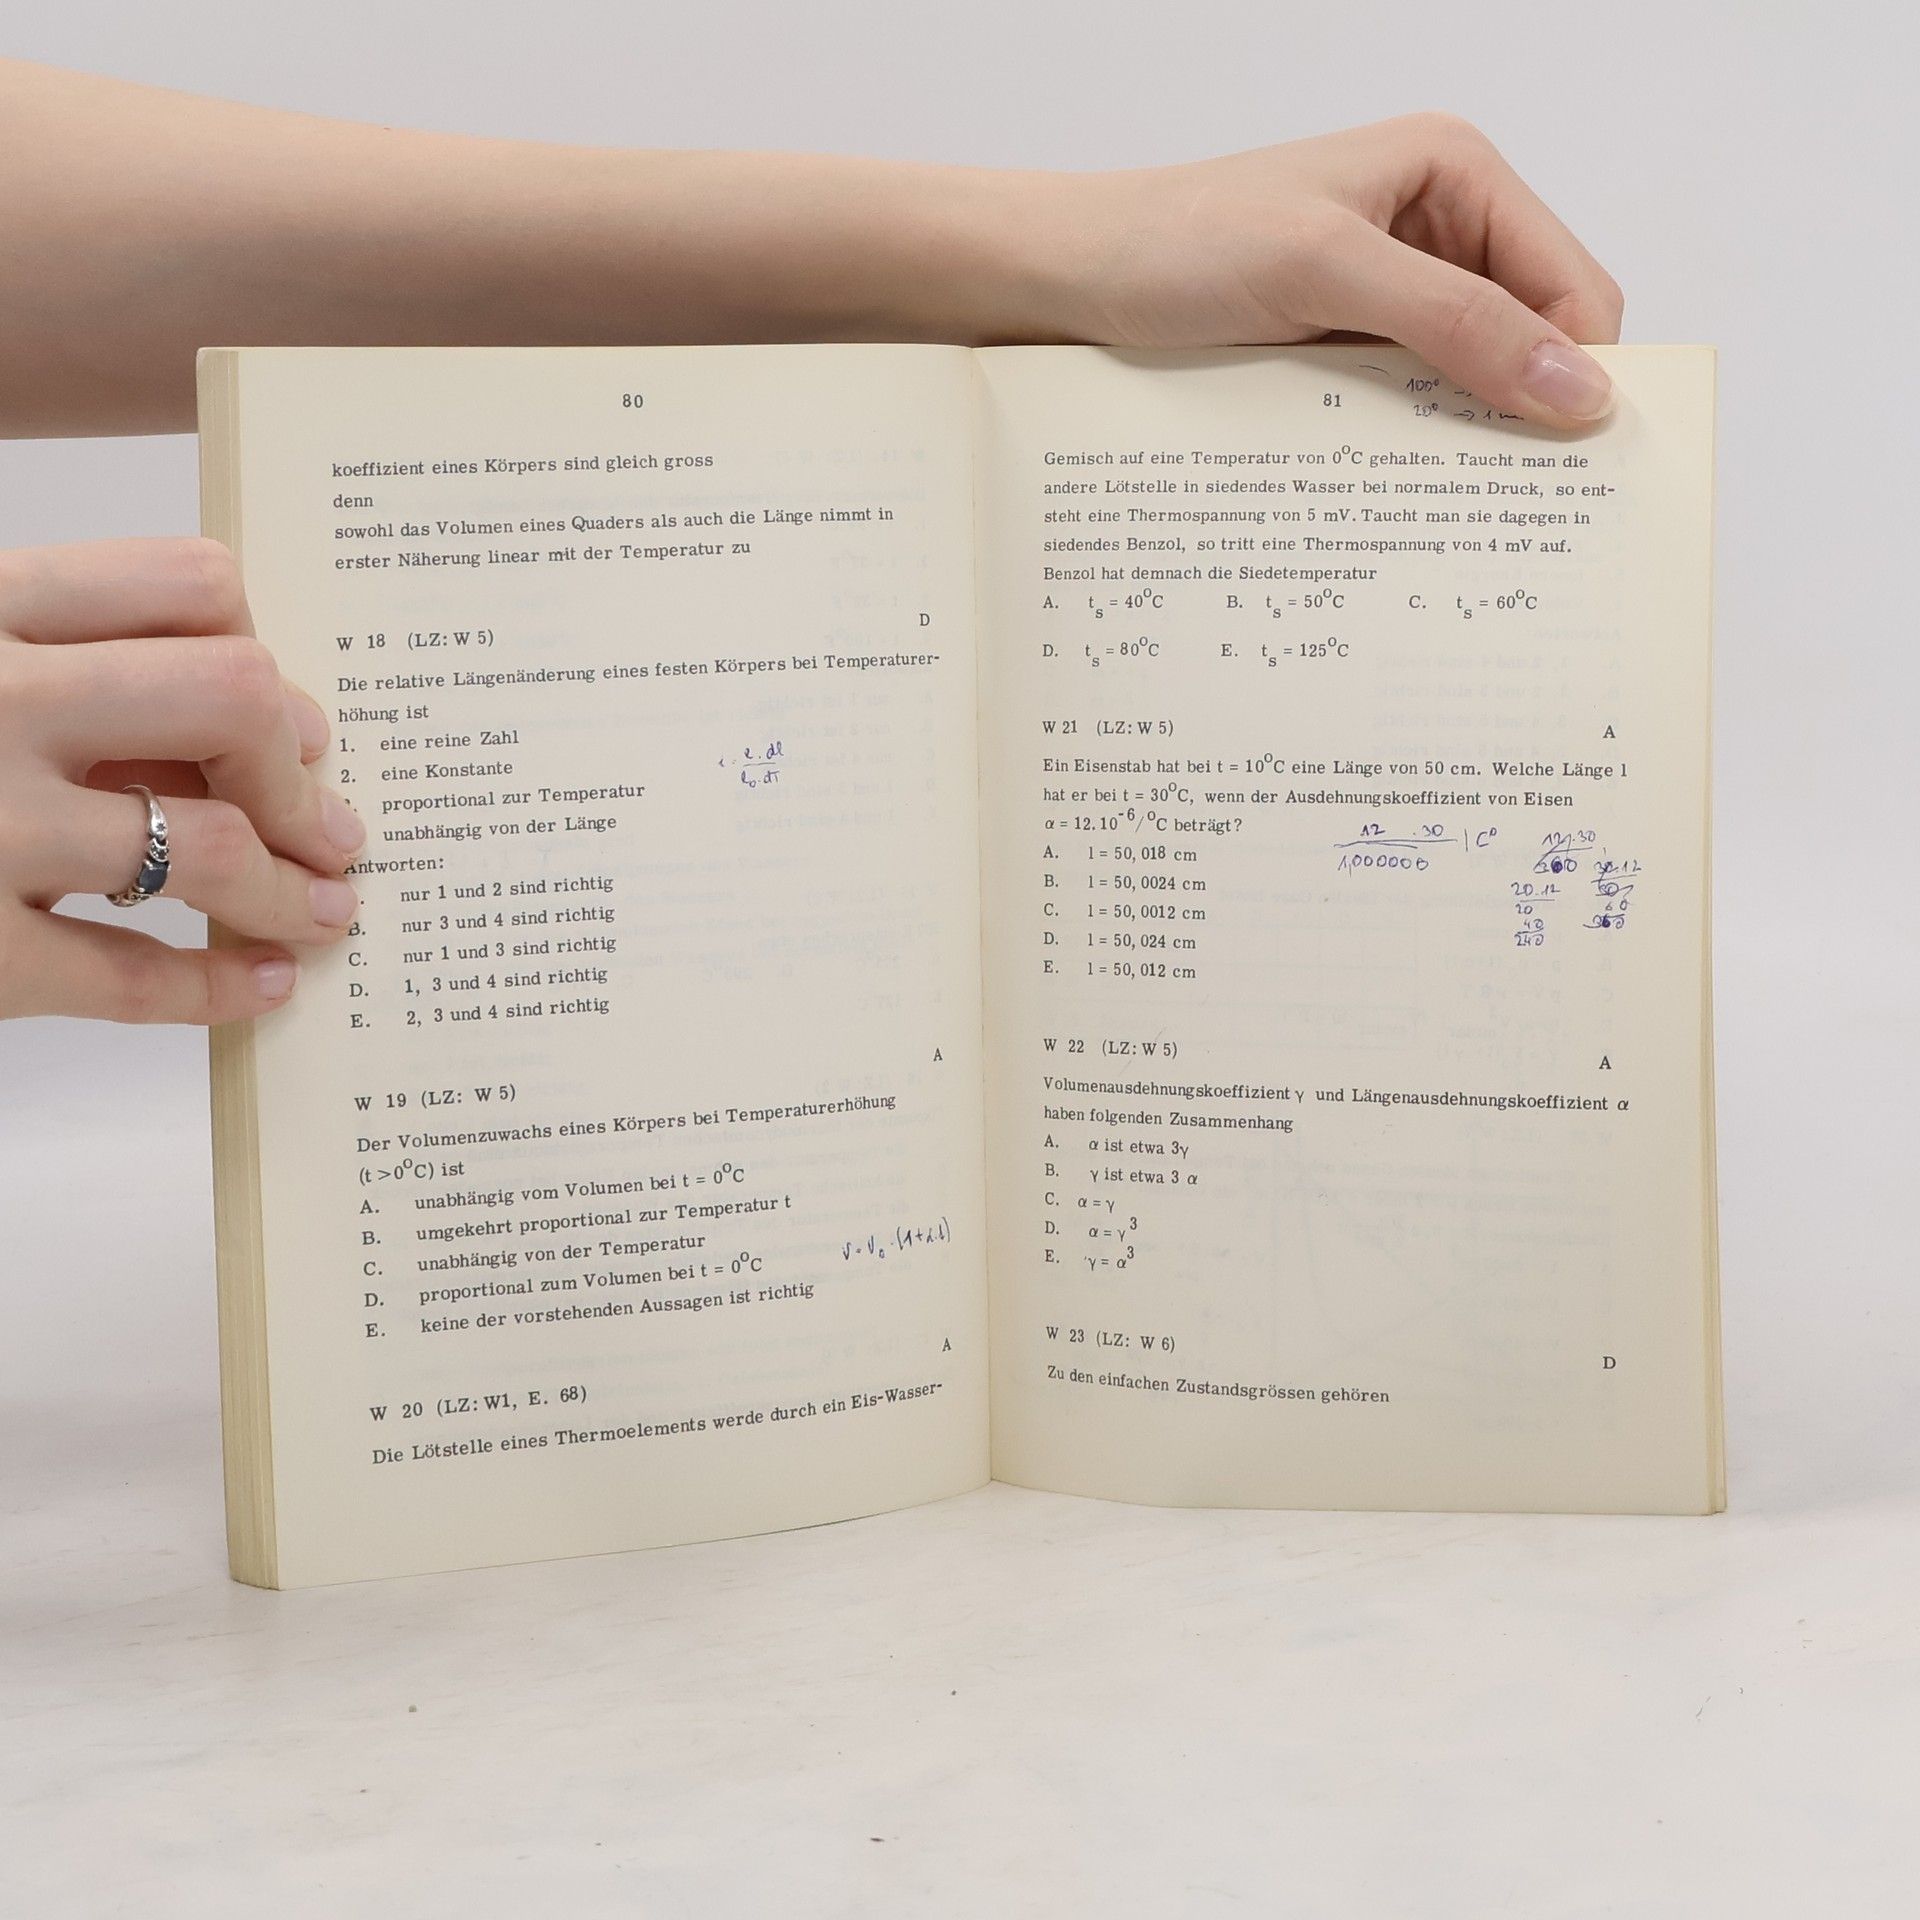 80
koeffizient eines Körpers sind gleich gross
denn
sowohl das Volumen eines Quaders als auch die Länge nimmt in
erster Näherung linear mit der Temperatur zu
D
W 18 (LZ: W 5)
Die relative Längenänderung eines festen Körpers bei Temperaturer-
höhung ist
1. eine reine Zahl
2. eine Konstante
proportional zur Temperatur
unabhängig von der Länge
Antworten:
nur 1 und 2 sind richtig
B. nur 3 und 4 sind richtig
C. nur 1 und 3 sind richtig
D. 1, 3 und 4 sind richtig
E. 2, 3 und 4 sind richtig
A
W 19 (LZ: W 5)
Der Volumenzuwachs eines Körpers bei Temperaturerhöhung
(t > 0°C) ist
A. unabhängig vom Volumen bei t = 0°C
B. umgekehrt proportional zur Temperatur t
C. unabhängig von der Temperatur
D. proportional zum Volumen bei t = 0°C
E. keine der vorstehenden Aussagen ist richtig
A
W 20 (LZ: W1, E. 68)
Die Lötstelle eines Thermoelements werde durch ein Eis-Wasser-
81
100°
20° → 1
Gemisch auf eine Temperatur von 0°C gehalten. Taucht man die
andere Lötstelle in siedendes Wasser bei normalem Druck, so ent-
steht eine Thermospannung von 5 mV. Taucht man sie dagegen in
siedendes Benzol, so tritt eine Thermospannung von 4 mV auf.
Benzol hat demnach die Siedetemperatur
A. t_s = 40°C B. t_s = 50°C C. t_s = 60°C
D. t_s = 80°C E. t_s = 125°C
W 21 (LZ: W 5) A
Ein Eisenstab hat bei t = 10°C eine Länge von 50 cm. Welche Länge l
hat er bei t = 30°C, wenn der Ausdehnungskoeffizient von Eisen
α = 12.10⁻⁶/°C beträgt?
12 . 30 | C°
1,000000
A. l = 50, 018 cm
B. l = 50, 0024 cm
C. l = 50, 0012 cm
D. l = 50, 024 cm
E. l = 50, 012 cm
20.12
20
40
240
30.12
60
360
W 22 (LZ: W 5)
A
Volumenausdehnungskoeffizient γ und Längenausdehnungskoeffizient α
haben folgenden Zusammenhang
A. α ist etwa 3γ
B. γ ist etwa 3 α
C. α = γ
D. α = γ³
E. γ = α³
W 23 (LZ: W 6)
D
Zu den einfachen Zustandsgrössen gehören